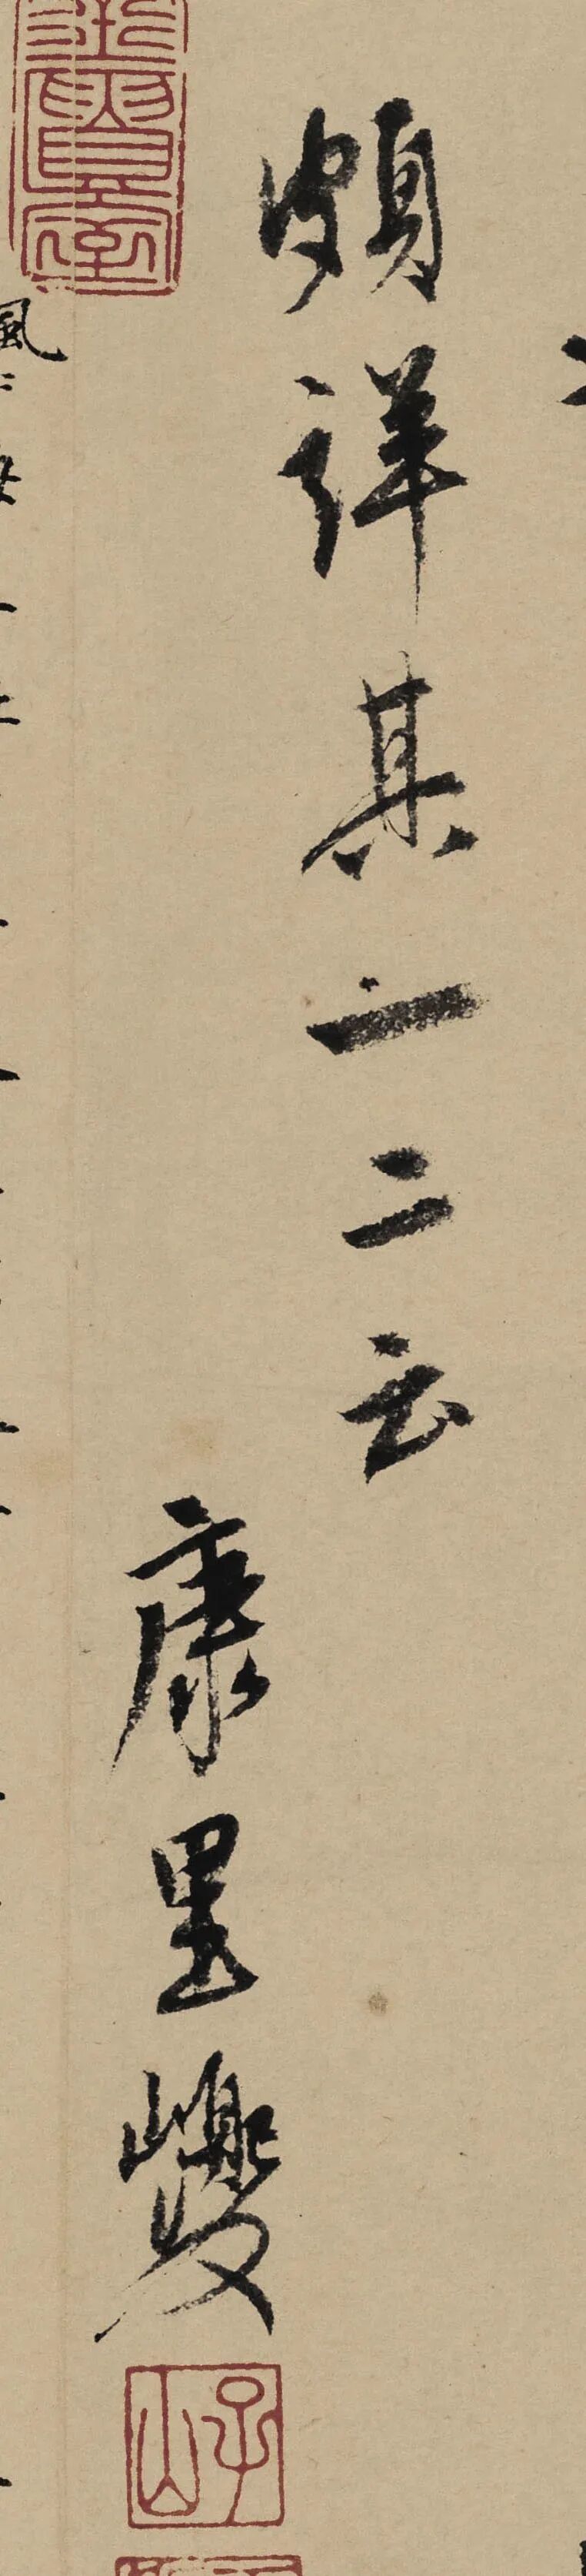 頗詳其一二云
康里巎
子山
風